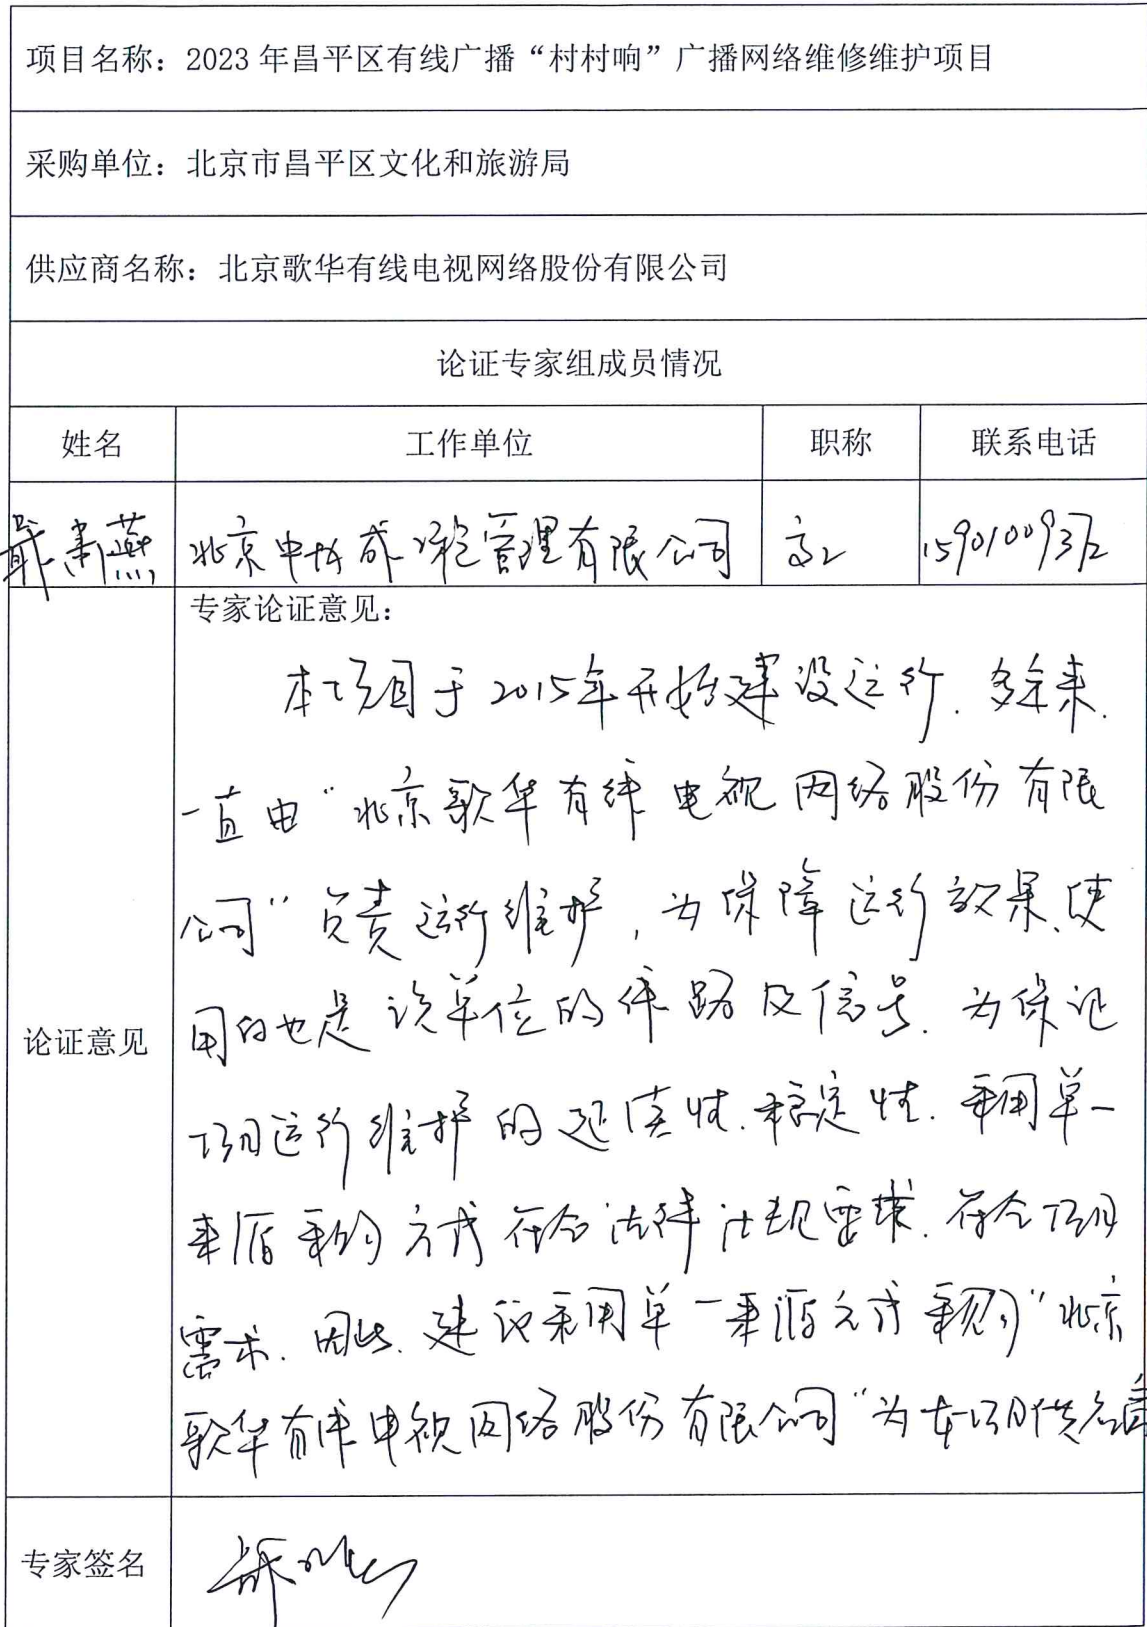 项目名称：2023年昌平区有线广播“村村响”广播网络维修维护项目
采购单位：北京市昌平区文化和旅游局
供应商名称：北京歌华有线电视网络股份有限公司
论证专家组成员情况
姓名 工作单位 职称 联系电话
戴 燕 北京中 管理有限公司 高工
专家论证意见：
本项目于2015年开始建设运行.多年来.
一直由“北京歌华有线电视网络股份有限
公司”负责运行维护，为保障运行效果、使
论证意见
用的也是该单位的线路及信号.为保证
项目运行维护的延续性.稳定性.采用单一
来源采购方式符合法律法规要求.符合项目
需求.因此.建议采用单一来源方式采购“北京
歌华有线电视网络股份有限公司”为本项目供应商
专家签名